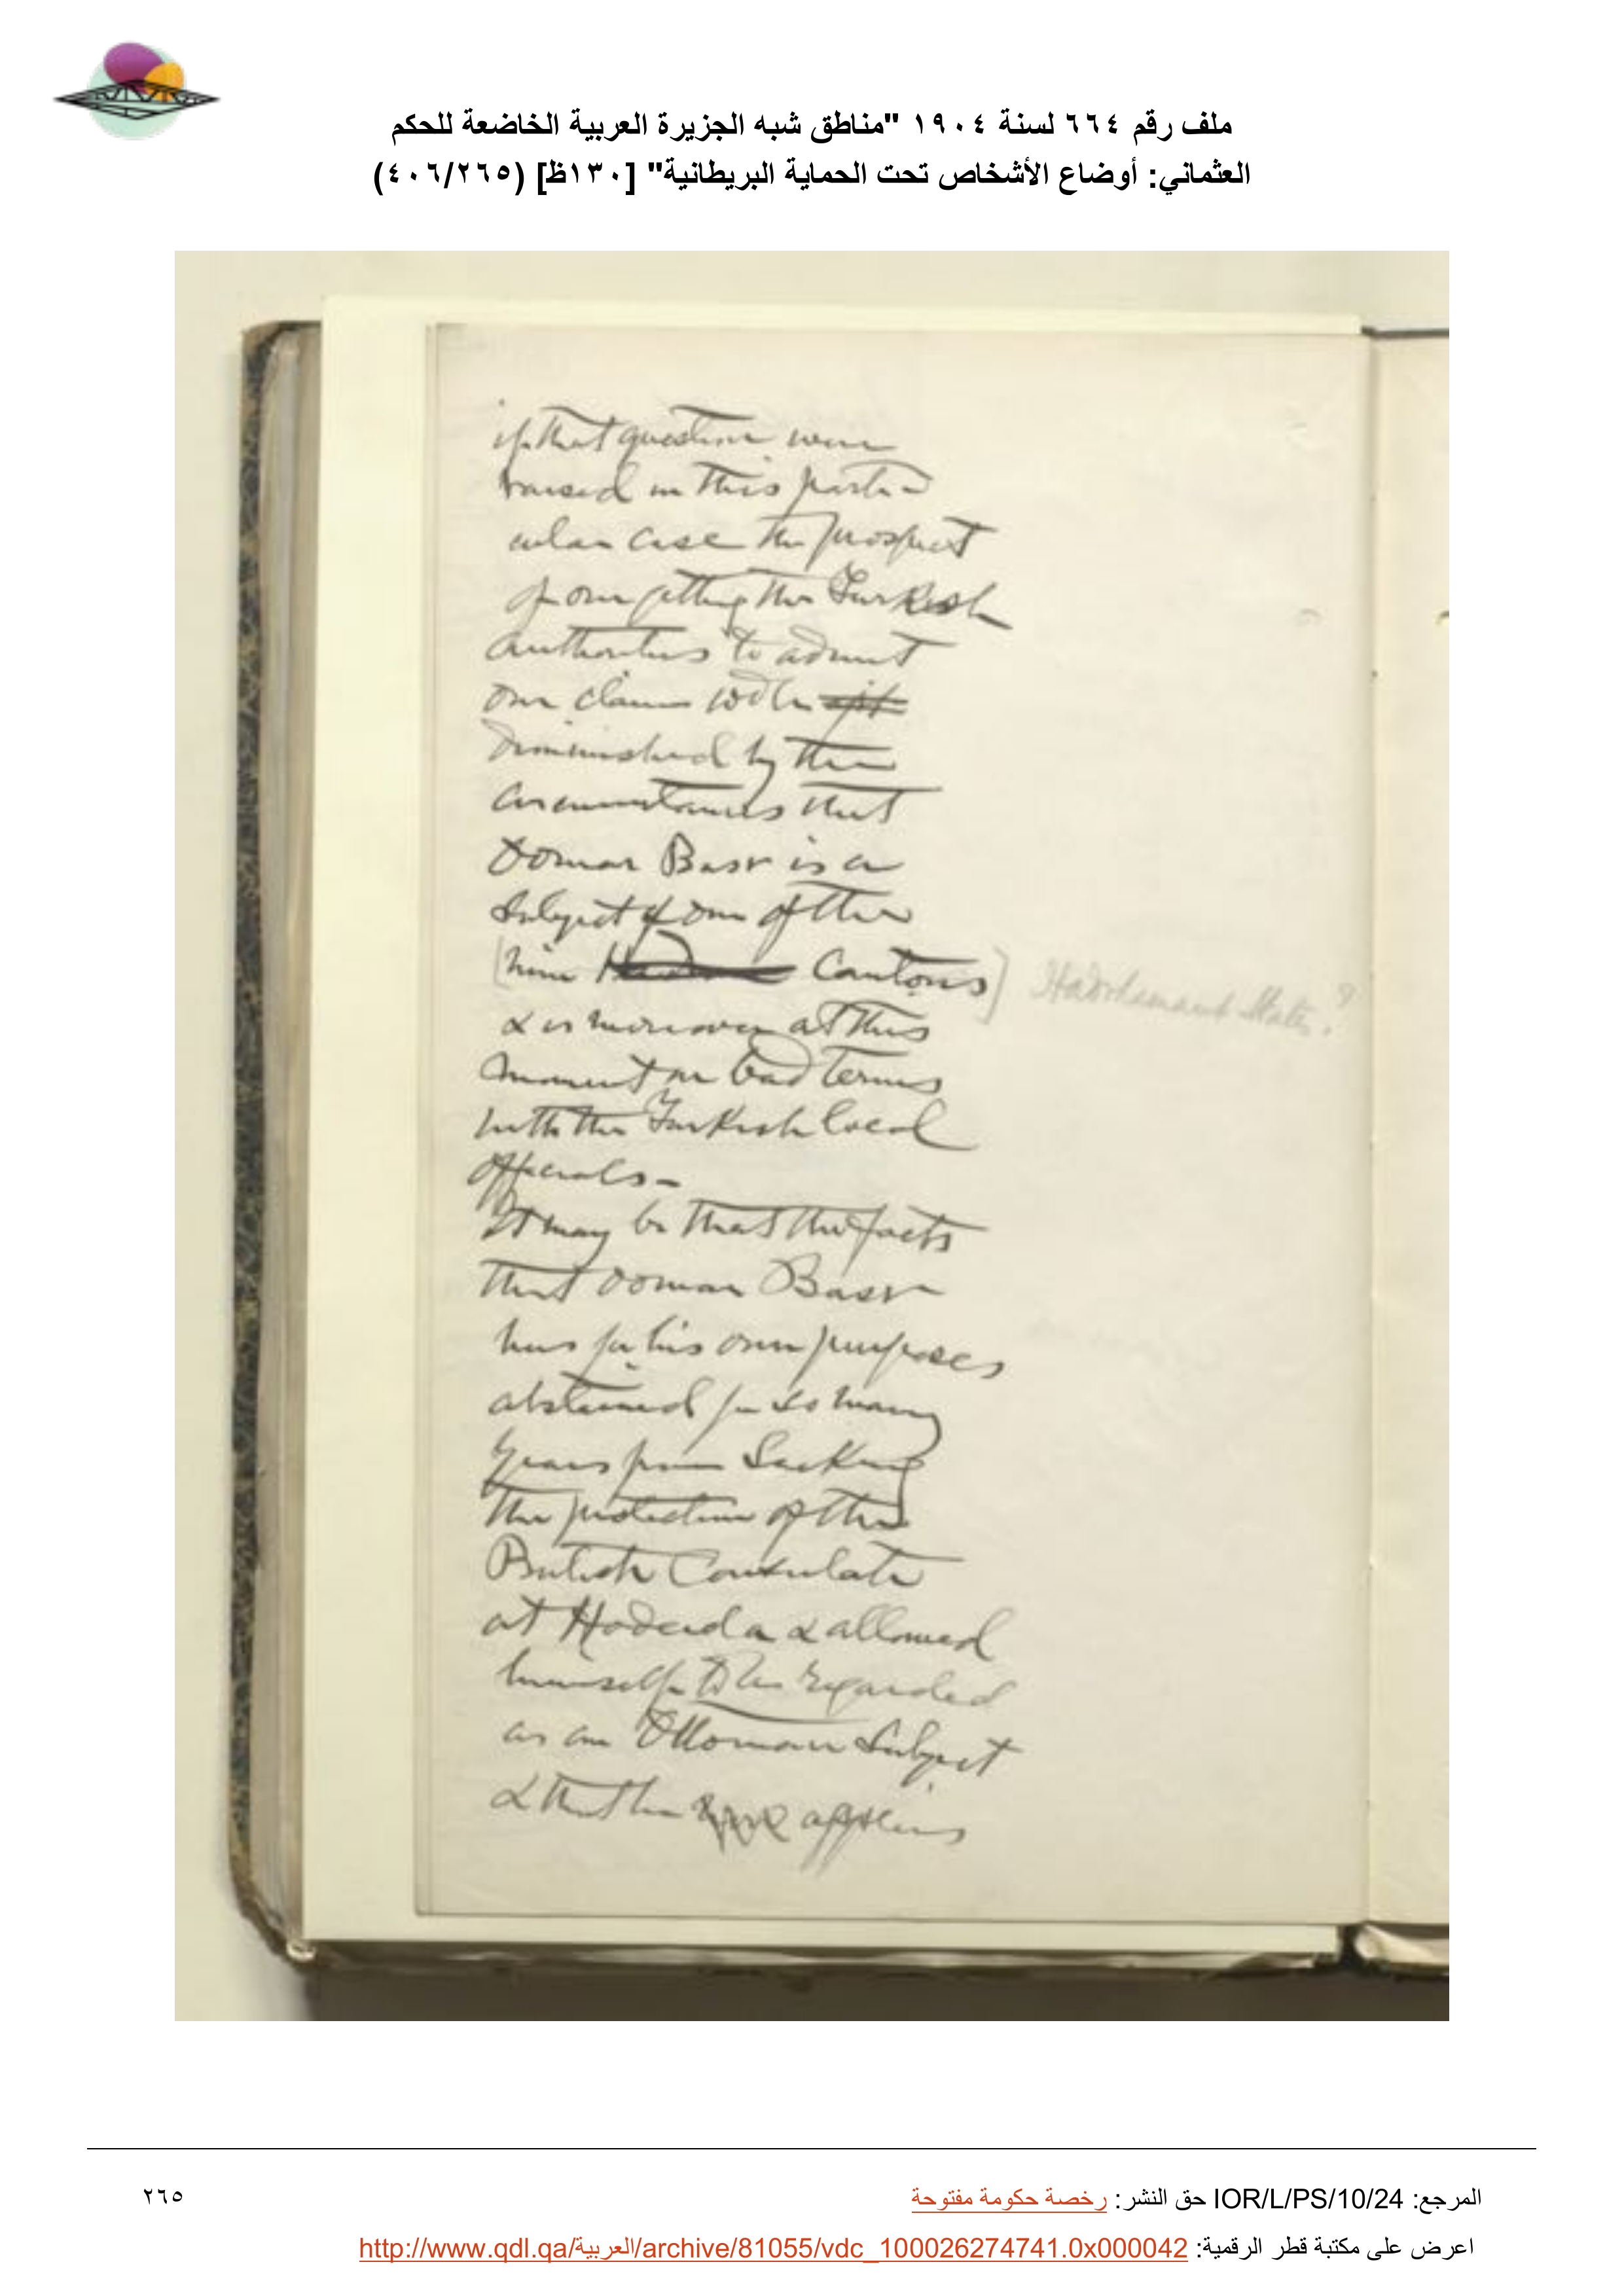 ملف رقم ٦٦٤ لسنة ١٩٠٤ "مناطق شبه الجزيرة العربية الخاضعة للحكم
العثماني: أوضاع الأشخاص تحت الحماية البريطانية" [١٣٠ظ] (٤٠٦/٢٦٥)
if that question were
raised in this partic
ular case the prospect
of our getting the Turkish
authorities to admit
our claim wd be
diminished by the
circumstances that
Oomar Basr is a
subject of one of the
[nine Cantons] Hadrhamaut States?
& is moreover at this
moment on bad terms
with the Turkish local
officials -
It may be that the facts
that Oomar Basr
has for his own purposes
abstained for so many
years from seeking
the protection of the
British Consulate
at Hodeida & allowed
himself to be regarded
as an Ottoman subject
& that he appears
المرجع: IOR/L/PS/10/24 حق النشر: رخصة حكومة مفتوحة
٢٦٥
اعرض على مكتبة قطر الرقمية: http://www.qdl.qa/العربية/archive/81055/vdc_100026274741.0x000042